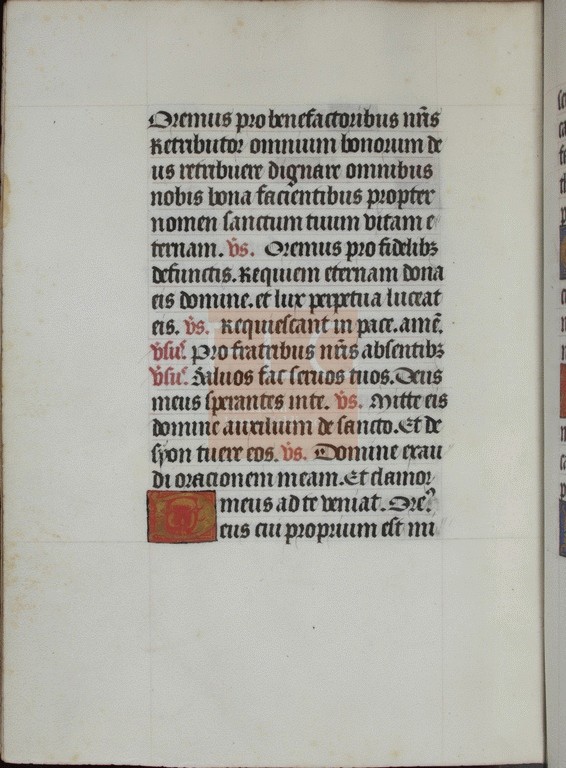 Oremus pro benefactoribus nr̃is
Retributor omnium bonorum de
us retribuere dignare omnibus
nobis bona facientibus propter
nomen sanctum tuum vitam e
ternam. v̄s. Oremus pro fidelibꝫ
defunctis. Requiem eternam dona
eis domine. et lux perpetua luceat
eis. v̄s. Requiescant in pace. amē.
v̄sus. Pro fratribus nr̃is absentibꝫ
v̄sus. Saluos fac seruos tuos. Deus
meus sperantes in te. v̄s. Mitte eis
domine auxilium de sancto. Et de
syon tuere eos. v̄s. Domine exau
di oracionem meam. Et clamor
meus ad te veniat. Orem⁹
Deus cui proprium est mi